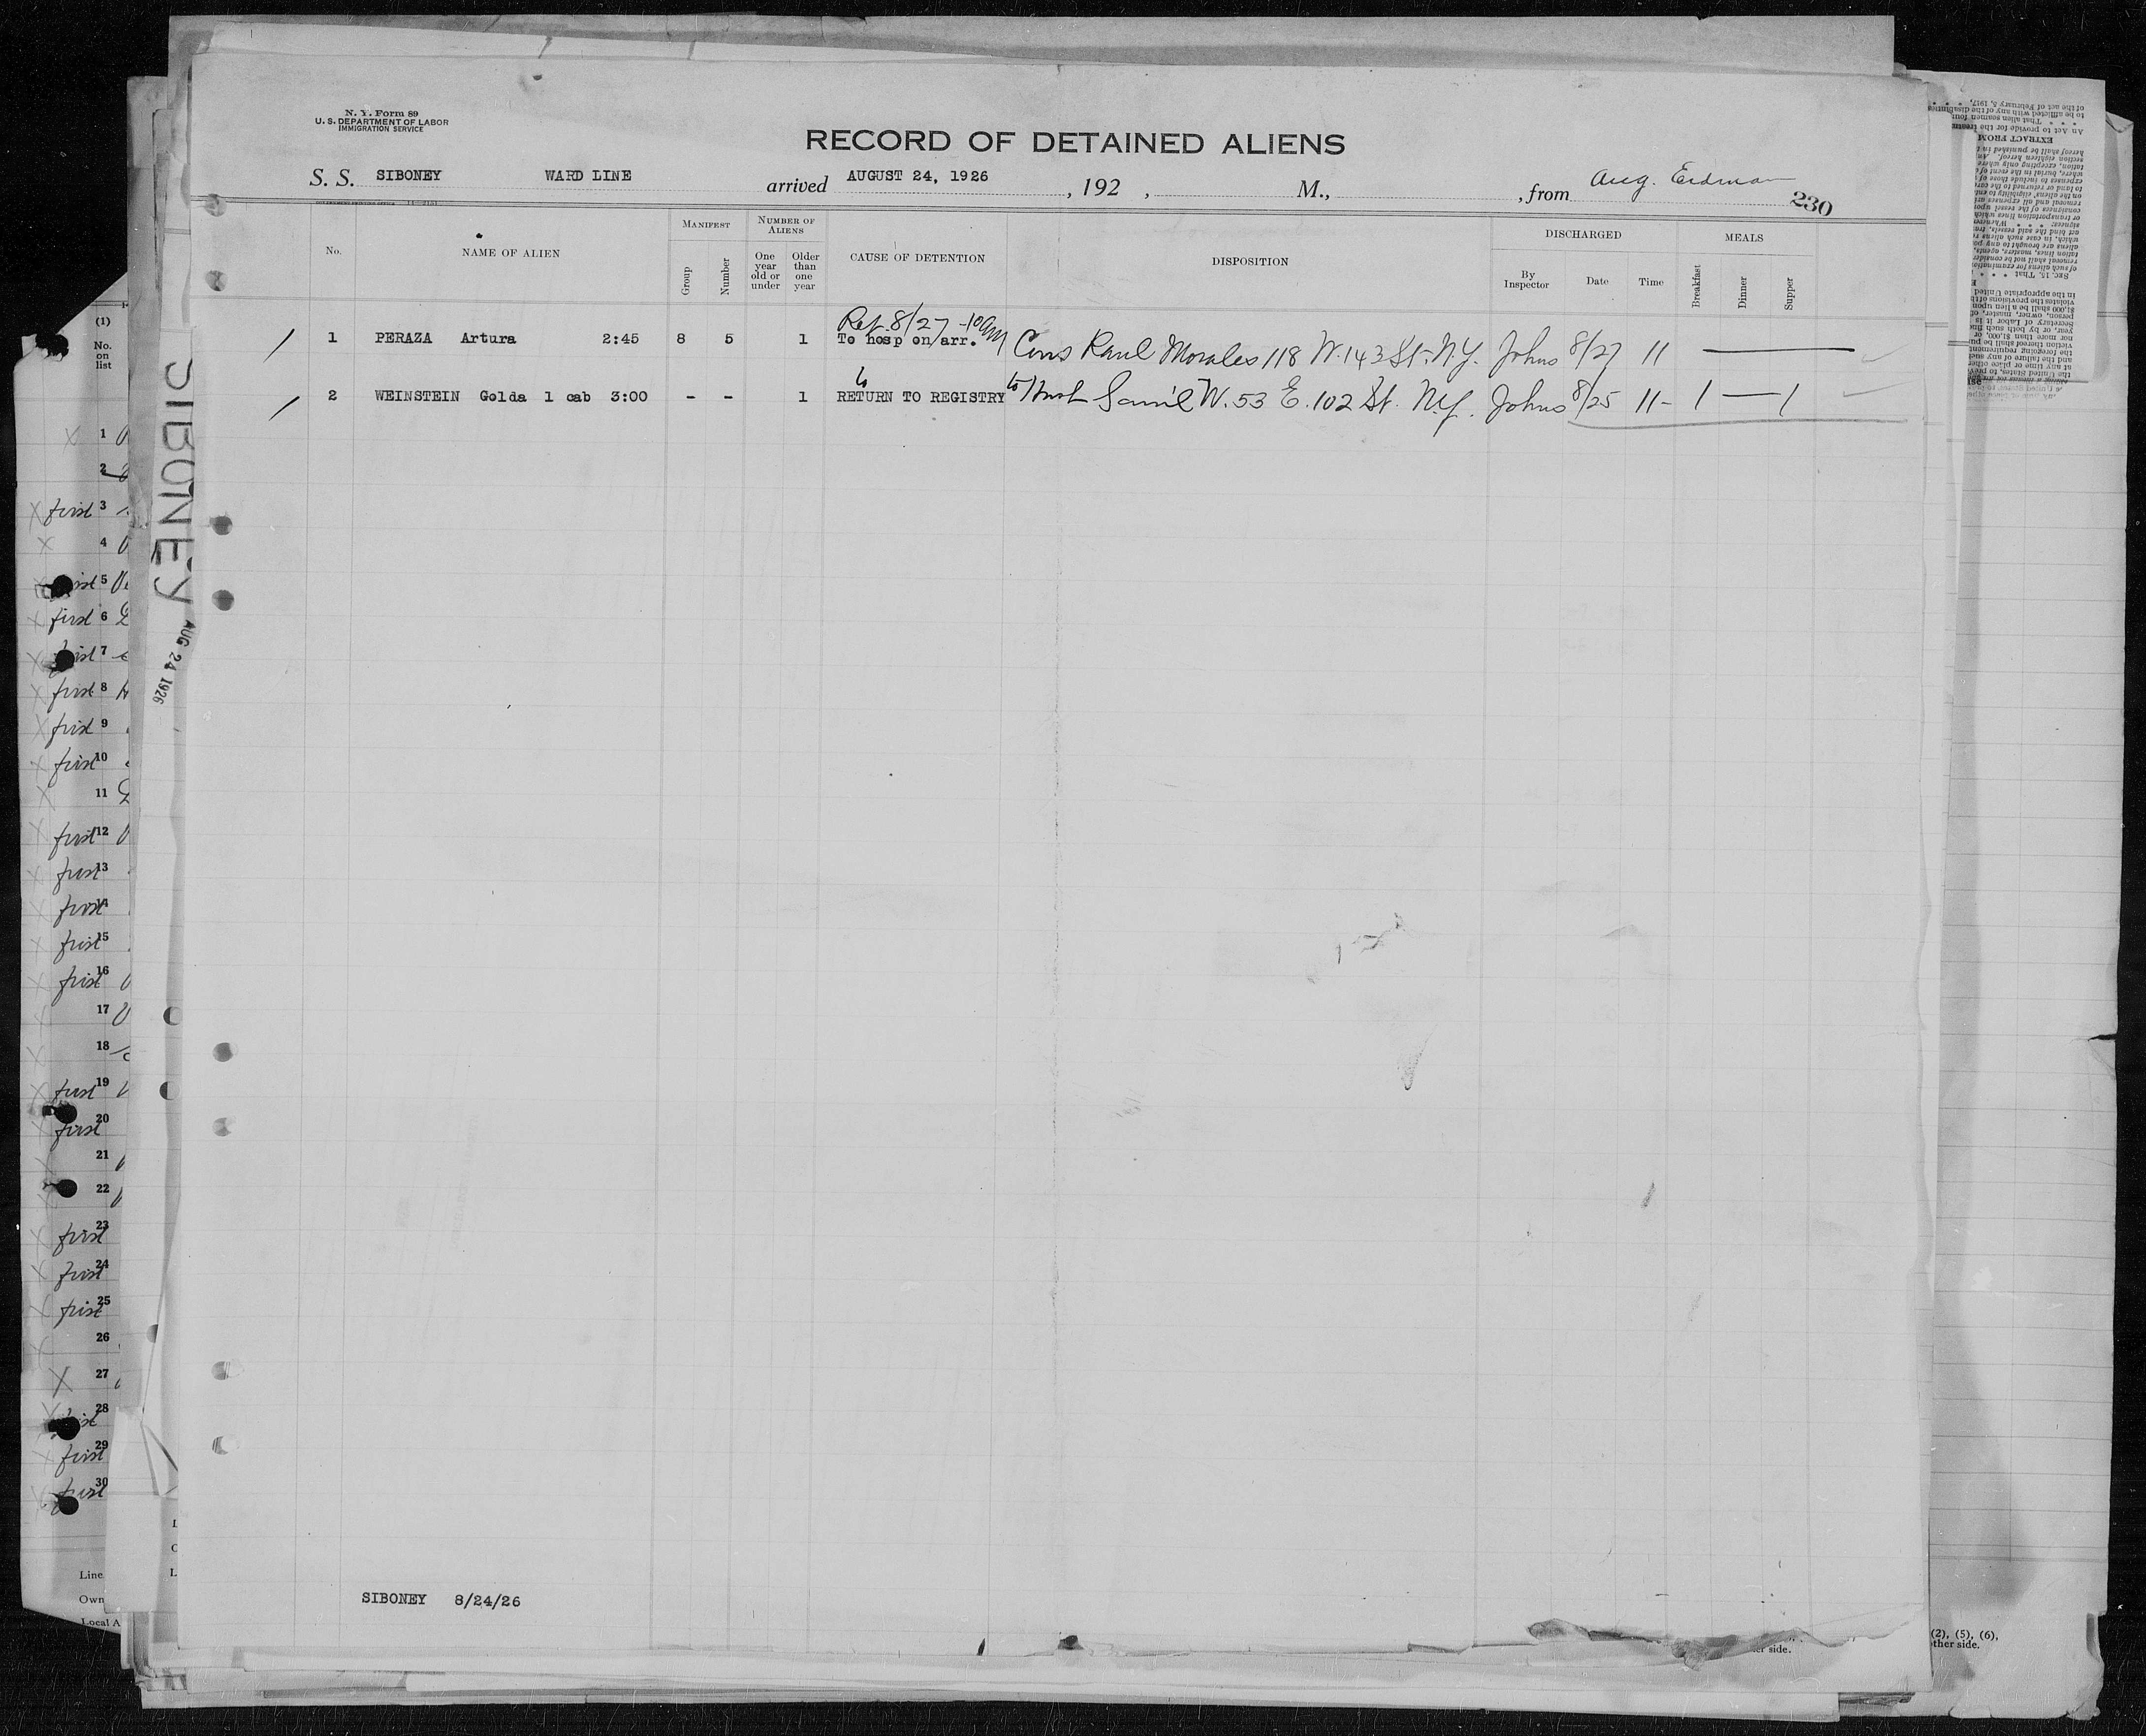 N. Y. Form 89
U. S. DEPARTMENT OF LABOR
IMMIGRATION SERVICE
RECORD OF DETAINED ALIENS
S. S. SIBONEY WARD LINE arrived AUGUST 24, 1926 , 192 , M., , from Aug. Erdman
230
No. NAME OF ALIEN MANIFEST NUMBER OF ALIENS CAUSE OF DETENTION DISPOSITION DISCHARGED MEALS
Group Number One year old or under Older than one year By Inspector Date Time Breakfast Dinner Supper
Ret. 8/27 - 10 am
1 PERAZA Artura 2:45 8 5 1 To hosp on arr. Cous Raul Morales 118 W. 143 St. N.Y. Johns 8/27 11 —
2 WEINSTEIN Golda 1 cab 3:00 - - 1 RETURN TO REGISTRY to Husb Sam'l W. 53 E. 102 St. N.Y. Johns 8/25 11- 1 — 1
SIBONEY 8/24/26
SIBONEY AUG 24 1926
(1)
No.
on
list
1
2
first 3
4
5
first 6
7
first 8
first 9
first 10
11
first 12
first 13
first 14
first 15
first 16
17
18
first 19
first 20
21
22
first 23
first 24
first 25
26
27
28
first 29
first 30
Line
Own
Local A
of the act of February 5, 1917,
to be afflicted with any of the disabilities
An Act to provide for the
EXTRACT FROM
SEC. 15. That
(2), (5), (6),
other side.
er side.